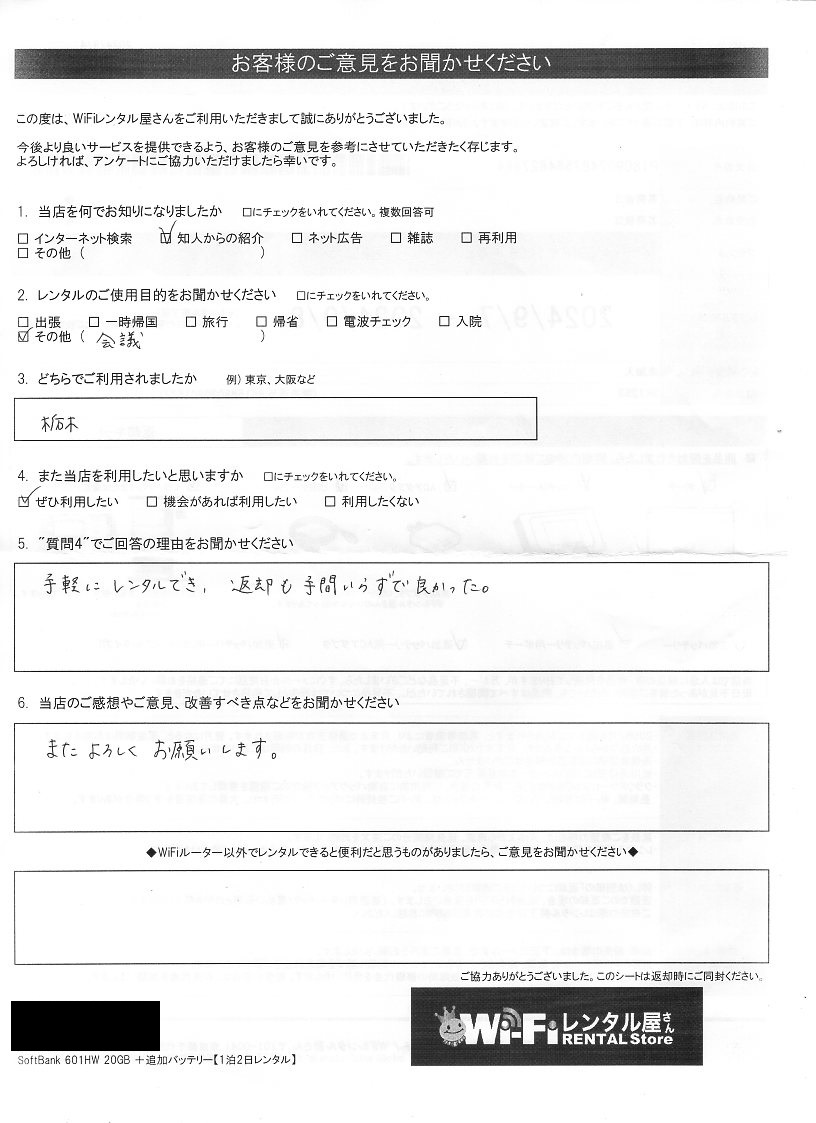 お客様のご意見をお聞かせください
この度は、WiFiレンタル屋さんをご利用いただきまして誠にありがとうございました。
今後より良いサービスを提供できるよう、お客様のご意見を参考にさせていただきたく存じます。
よろしければ、アンケートにご協力いただけましたら幸いです。
1. 当店を何でお知りになりましたか □にチェックをいれてください。複数回答可
□ インターネット検索 ☑ 知人からの紹介 □ ネット広告 □ 雑誌 □ 再利用
□ その他 ( )
2. レンタルのご使用目的をお聞かせください □にチェックをいれてください。
□ 出張 □ 一時帰国 □ 旅行 □ 帰省 □ 電波チェック □ 入院
☑ その他 ( 会議 )
3. どちらでご利用されましたか 例) 東京、大阪など
栃木
4. また当店を利用したいと思いますか □にチェックをいれてください。
☑ ぜひ利用したい □ 機会があれば利用したい □ 利用したくない
5. "質問4"でご回答の理由をお聞かせください
手軽にレンタルでき、返却も手間いらずで良かった。
6. 当店のご感想やご意見、改善すべき点などをお聞かせください
またよろしくお願いします。
◆WiFiルーター以外でレンタルできると便利だと思うものがありましたら、ご意見をお聞かせください◆
ご協力ありがとうございました。このシートは返却時にご同封ください。
Wi-Fiレンタル屋さん
RENTAL Store
SoftBank 601HW 20GB +追加バッテリー【1泊2日レンタル】